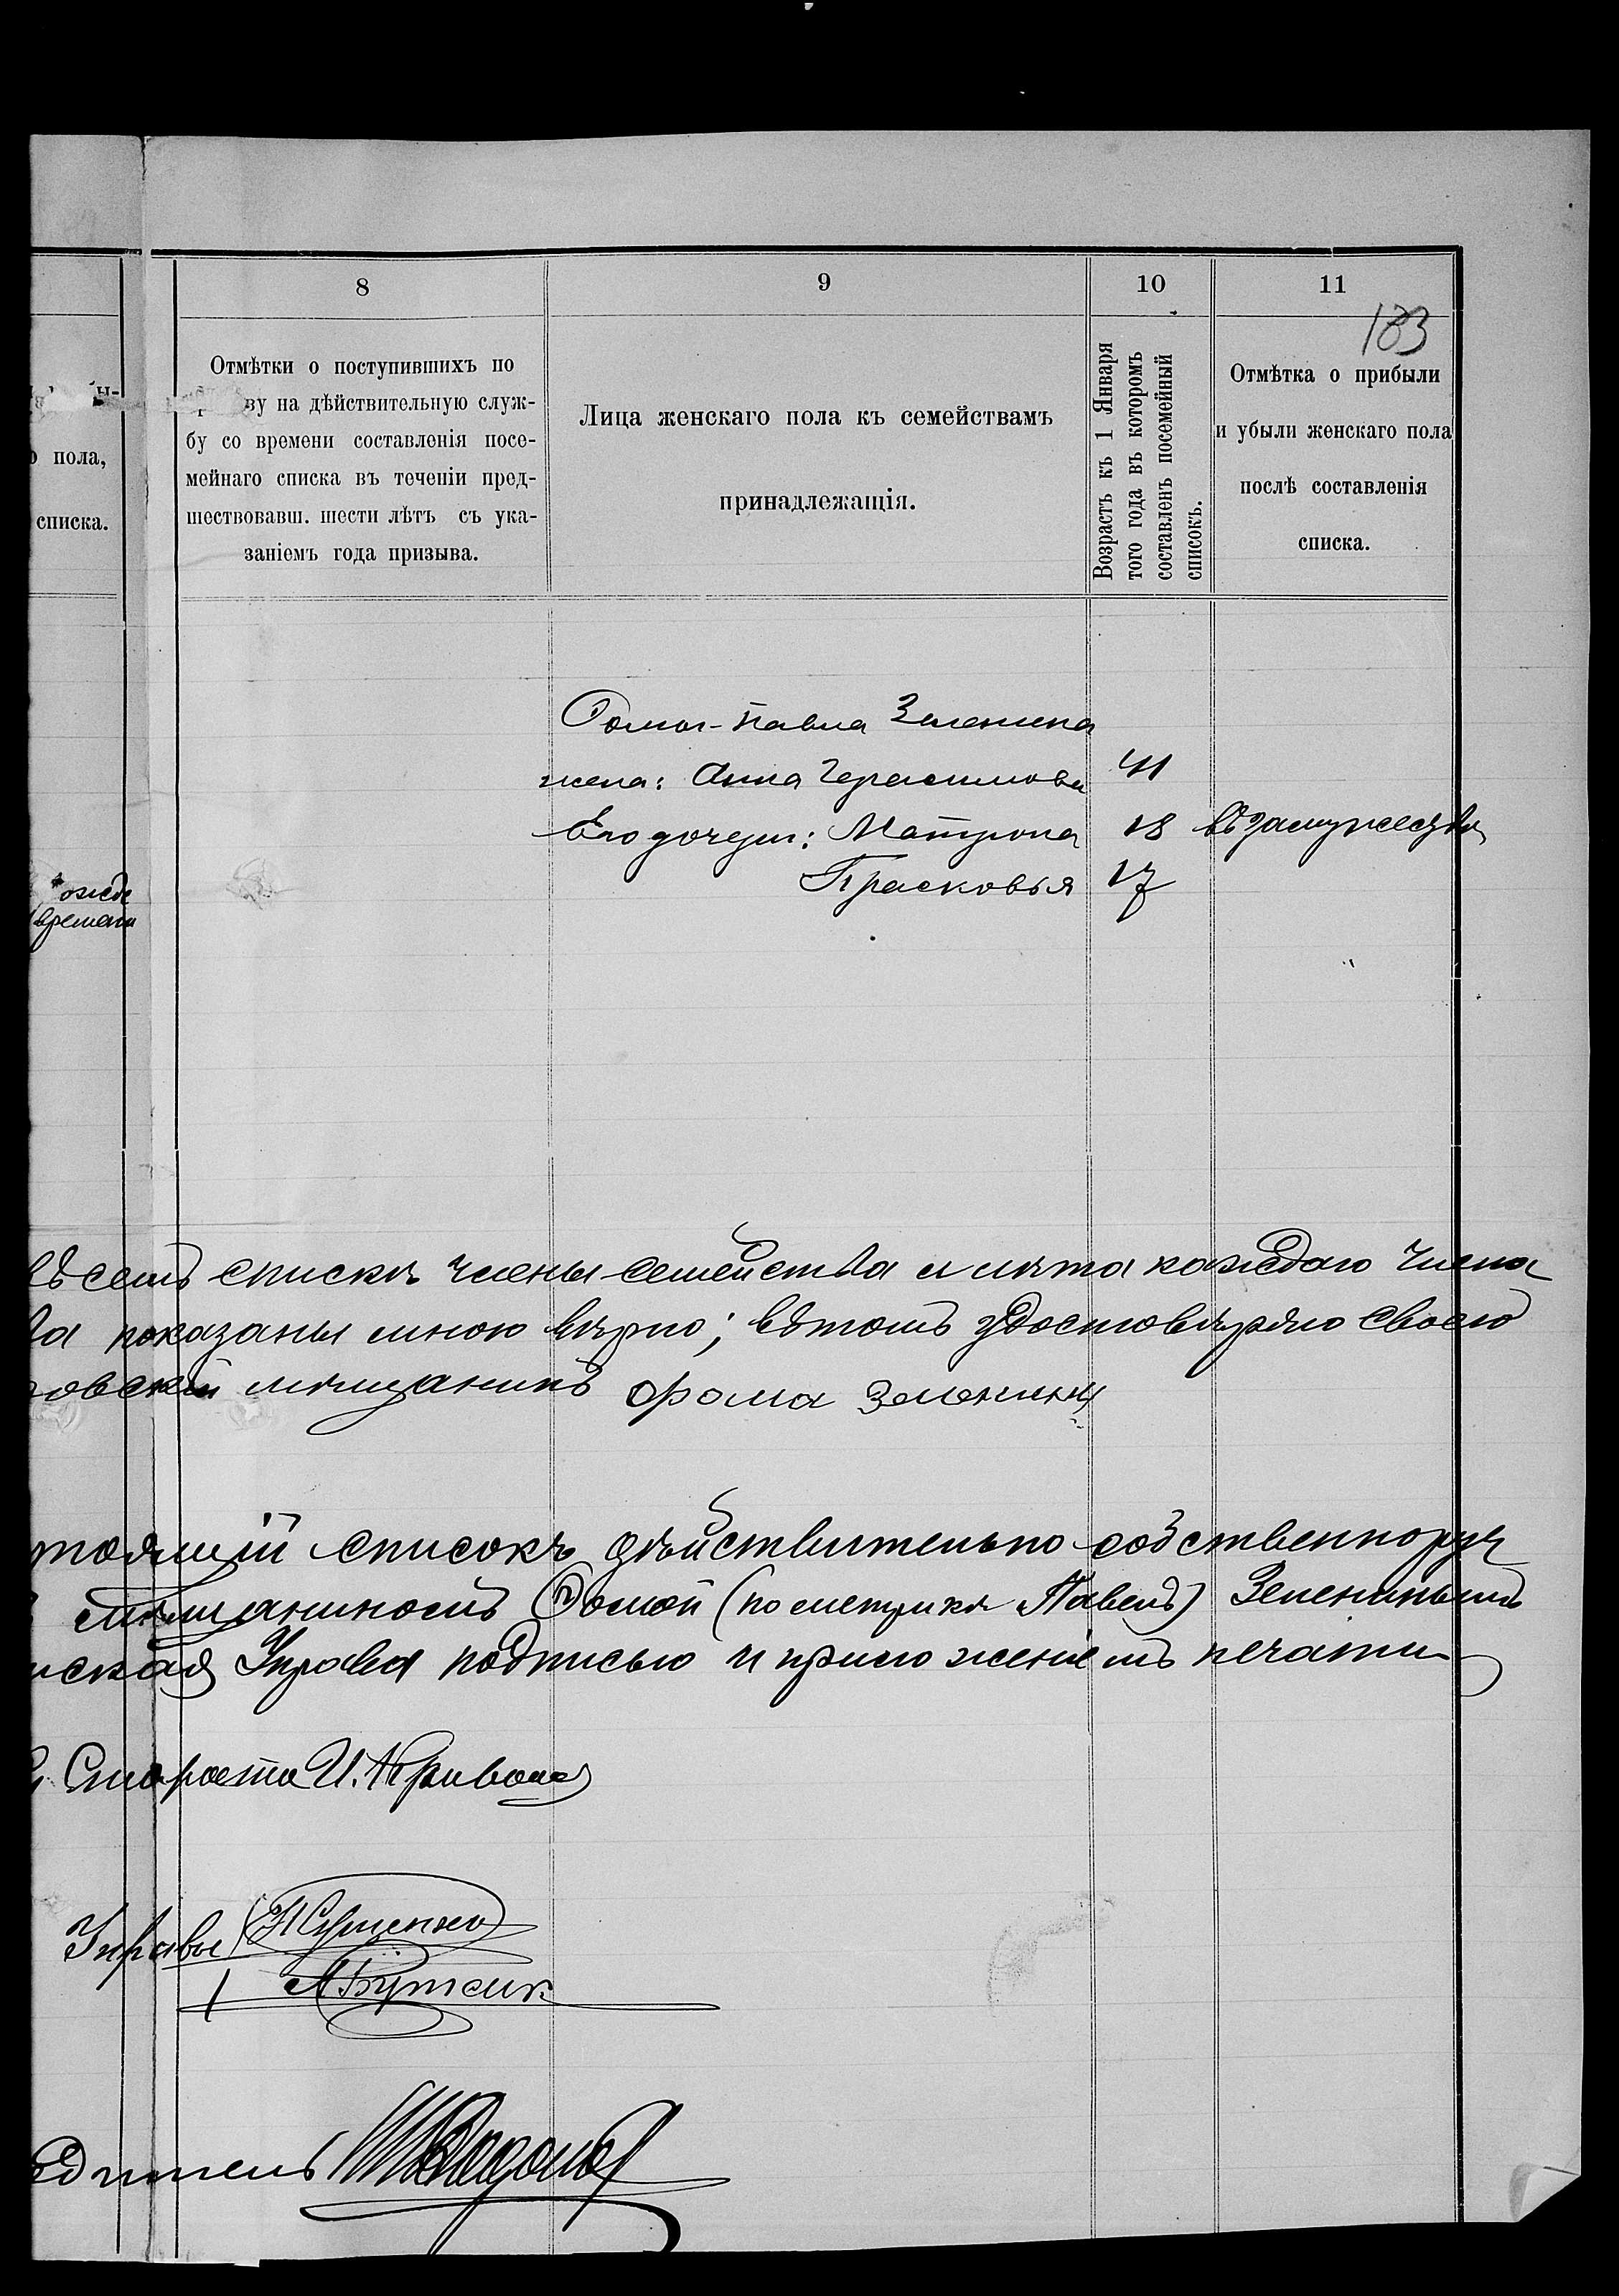 8
9
10
11
183
ы-
о пола,
списка.
Отмѣтки о поступившихъ по
ву на дѣйствительную служ-
бу со времени составленія посе-
мейнаго списка въ теченіи пред-
шествовавш. шести лѣтъ съ ука-
заніемъ года призыва.
Лица женскаго пола къ семействамъ
принадлежащія.
Возрастъ къ 1 Января
того года въ которомъ
составленъ посемейный
списокъ.
Отмѣтка о прибыли
и убыли женскаго пола
послѣ составленія
списка.
Ѳомы-Павла Зеленина
жена: Анна Герасимова 41
Его дочери: Матрона 18 въ замужествѣ
Прасковья 17
времени
въ семъ спискѣ члены семейства и лѣта каждаго члена
ва показаны мною вѣрно; въ томъ удостовѣряю своею
овскій мѣщанинъ Фома Зеленинъ
тоящій списокъ дѣйствительно собственноруч
мѣщаниномъ Ѳомой (по метрикѣ Павелъ) Зеленинымъ
нская Управа подписью и приложеніемъ печати
Староста И.
Управы